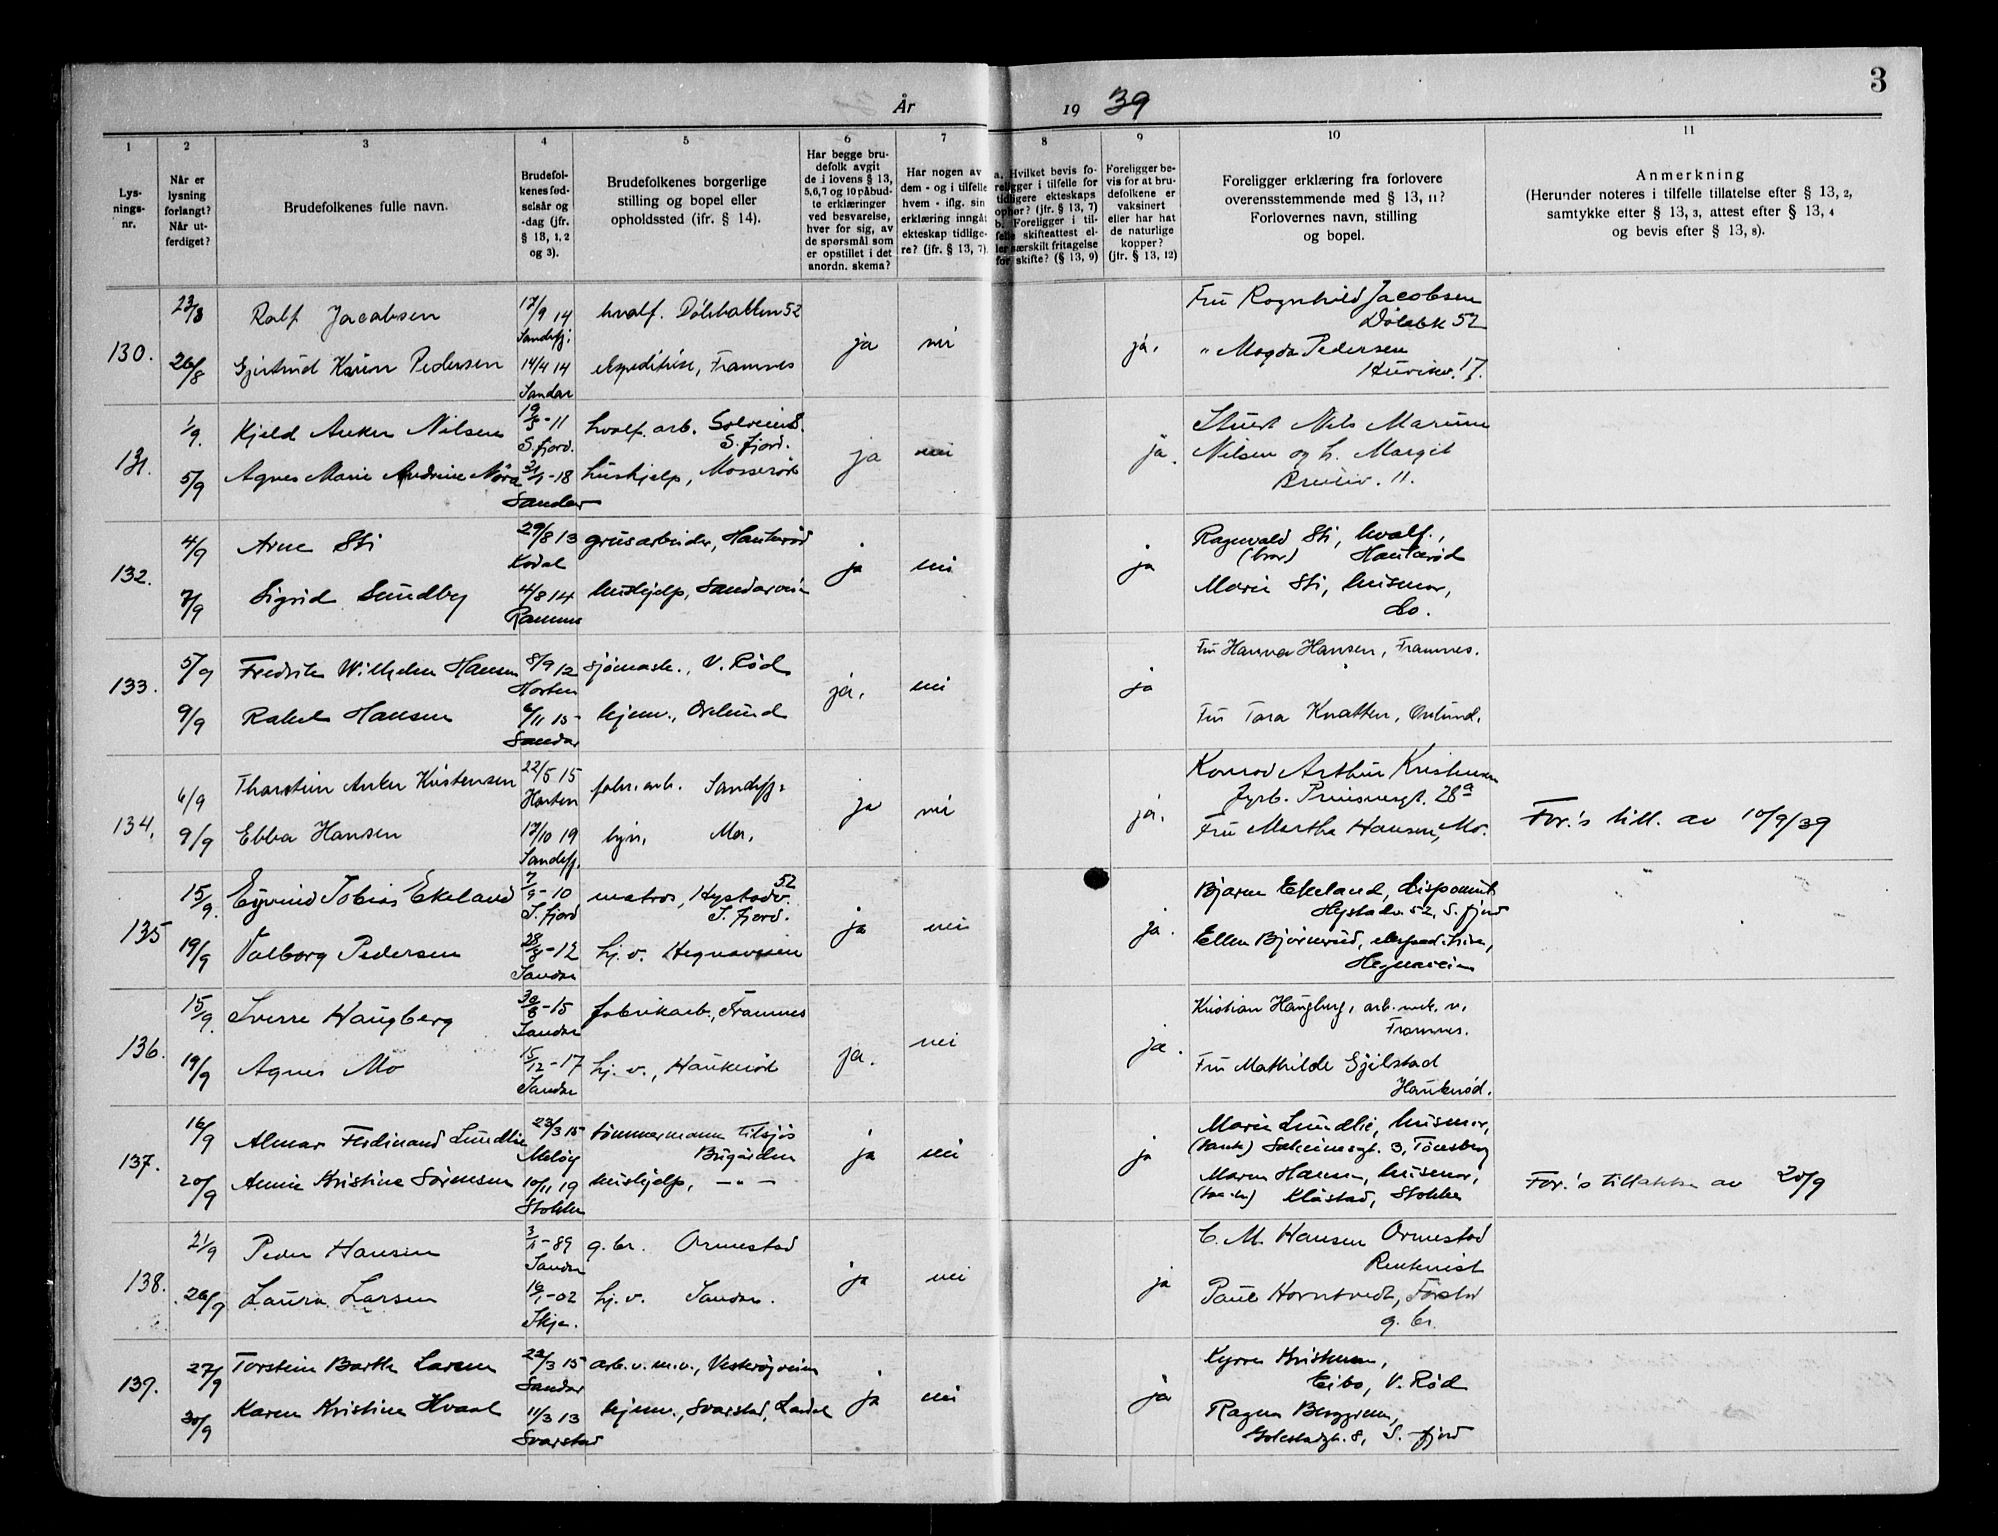 3
År 1939
1 2 3 4 5 6 7 8 9 10 11
Lys-
nings-
nr.
Når er
lysning
forlangt?
Når ut-
ferdiget?
Brudefolkenes fulle navn.
Brudefol-
kenes fød-
selsår og
-dag (jfr.
§ 13, 1, 2
og 3).
Brudefolkenes borgerlige
stilling og bopel eller
opholdssted (ifr. § 14).
Har begge bru-
defolk avgit
de i lovens § 13,
5,6,7 og 10 påbud-
te erklæringer
ved besvarelse,
hver for sig, av
de spørsmål som
er opstillet i det
anordn. skema?
Har nogen av
dem - og i tilfelle
hvem - iflg. sin
erklæring inngått
ekteskap tidlige-
re? (jfr. § 13, 7).
a. Hvilket bevis fo-
religger i tilfelle for
tidligere ekteskaps
ophør? (jfr. § 13, 7)
b. Foreligger i til-
felle skifteattest el-
ler særskilt fritagelse
for skifte? (§ 13, 9)
Foreligger be-
vis for at bru-
defolkene er
vaksinert
eller har hat
de naturlige
kopper?
(jfr. § 13, 12)
Foreligger erklæring fra forlovere
overensstemmende med § 13, 11?
Forlovernes navn, stilling
og bopel.
Anmerkning
(Herunder noteres i tilfelle tillatelse efter § 13, 2,
samtykke efter § 13, 3, attest efter § 13, 4
og bevis efter § 13, 8).
130.
23/8 Ralf Jacobsen 17/9 14 Sandefj. hvalf. Dølebakken 52
26/8 Gjertrud Karin Pedersen 14/4 14 Sandar ekspeditrise, Framnes
ja nei ja.
Fru Ragnhild Jacobsen
Dølebk 52
" Magda Pedersen
17.
131.
1/9. Kjeld Anker Nilsen -11 S.fjord. hvalf. arb.
S. fjord.
5/9 Agnes Marie Andrine -18 Sandar hushjelp, Mosserød
ja nei ja.
Stuert Nils Marius
Nilsen og h. Margit
11.
132.
4/9 Arne Sti 29/8 13 Kodal grusarbeider, Haukerød
7/9 Sigrid Sundby 4/8 14 Ramnes hushjelp, Sandarveien
ja nei ja
Ragnvald Sti, hvalf.,
(bror) Haukerød
Marie Sti, husmor,
do.
133.
5/9 Fredrik Wilhelm Hansen 8/9 12 Horten sjømask., V. Rød
9/9 Rakel Hansen 6/11 15 Sandar hjemv., Orelund
ja. nei ja
Fru Hanna Hansen, Framnes.
Fru Tora Knatten, Orelund.
134.
6/9 Thorstein Anker Kristensen 22/5 15 Horten fabr. arb. Sandefj.
9/9 Ebba Hansen 17/10 19 Sandefj. hjv. Mo.
ja nei ja.
Konrad Arthur Kristensen
fyrb. Prinsensgt. 28a
Fru Martha Hansen, Mo.
For.'s till. av 10/9/39
135
15/9. Eyvind Tobias Ekeland 7/9-10 S. fjord matros, Hystadv. 52
S. fjord.
19/9 Valborg Pedersen 28/8-12 Sandar hj. v. Hegnaveien
ja nei ja.
Bjarne Ekeland, disponent
Hystadv. 52, S. fjord
Ellen Bjørnerud, ekspeditrise,
Hegnaveien
136.
15/9. Sverre Haugberg 30/8-15 Sandar fabrikarb., Framnes
19/9 Agnes Mo 15/12-17 Sandar hj. v., Haukerød
ja. nei ja.
Kristian Haugberg, arb. mek. v.
Framnes.
Fru Mathilde Gjilstad
Haukerød.
137.
16/9 Almar Ferdinand Lundlie 23/3 15 Meløy tømmermann tilsjøs
Bugården
20/9 Annie Kristine Sørensen 10/11 19 Stokke hushjelp, -"-
ja nei ja
Marie Lundlie, husmor,
(tante) 3, Tønsberg
Maren Hansen, husmor,
(tante) Klåstad, Stokke
For.'s tillatelse av 20/9
138.
21/9 Peder Hansen -89 Sandar g. br. Ormestad
26/9 Laura Larsen -02 Skje. hj. v. Sandar.
ja nei ja
C. M. Hansen Ormestad
Rentenist
Paul Horntvedt,
g. br.
139.
27/9 Torstein Barth Larsen 22/3 15 Sandar arb. v. m.v., Vesterøyveien
30/9 Karen Kristine Hvaal 11/3 13 Svarstad hjemv., Svarstad,
ja nei ja
Kyrre Kristensen,
Eibo, V. Rød
Ragna Berggren,
8, S. fjord